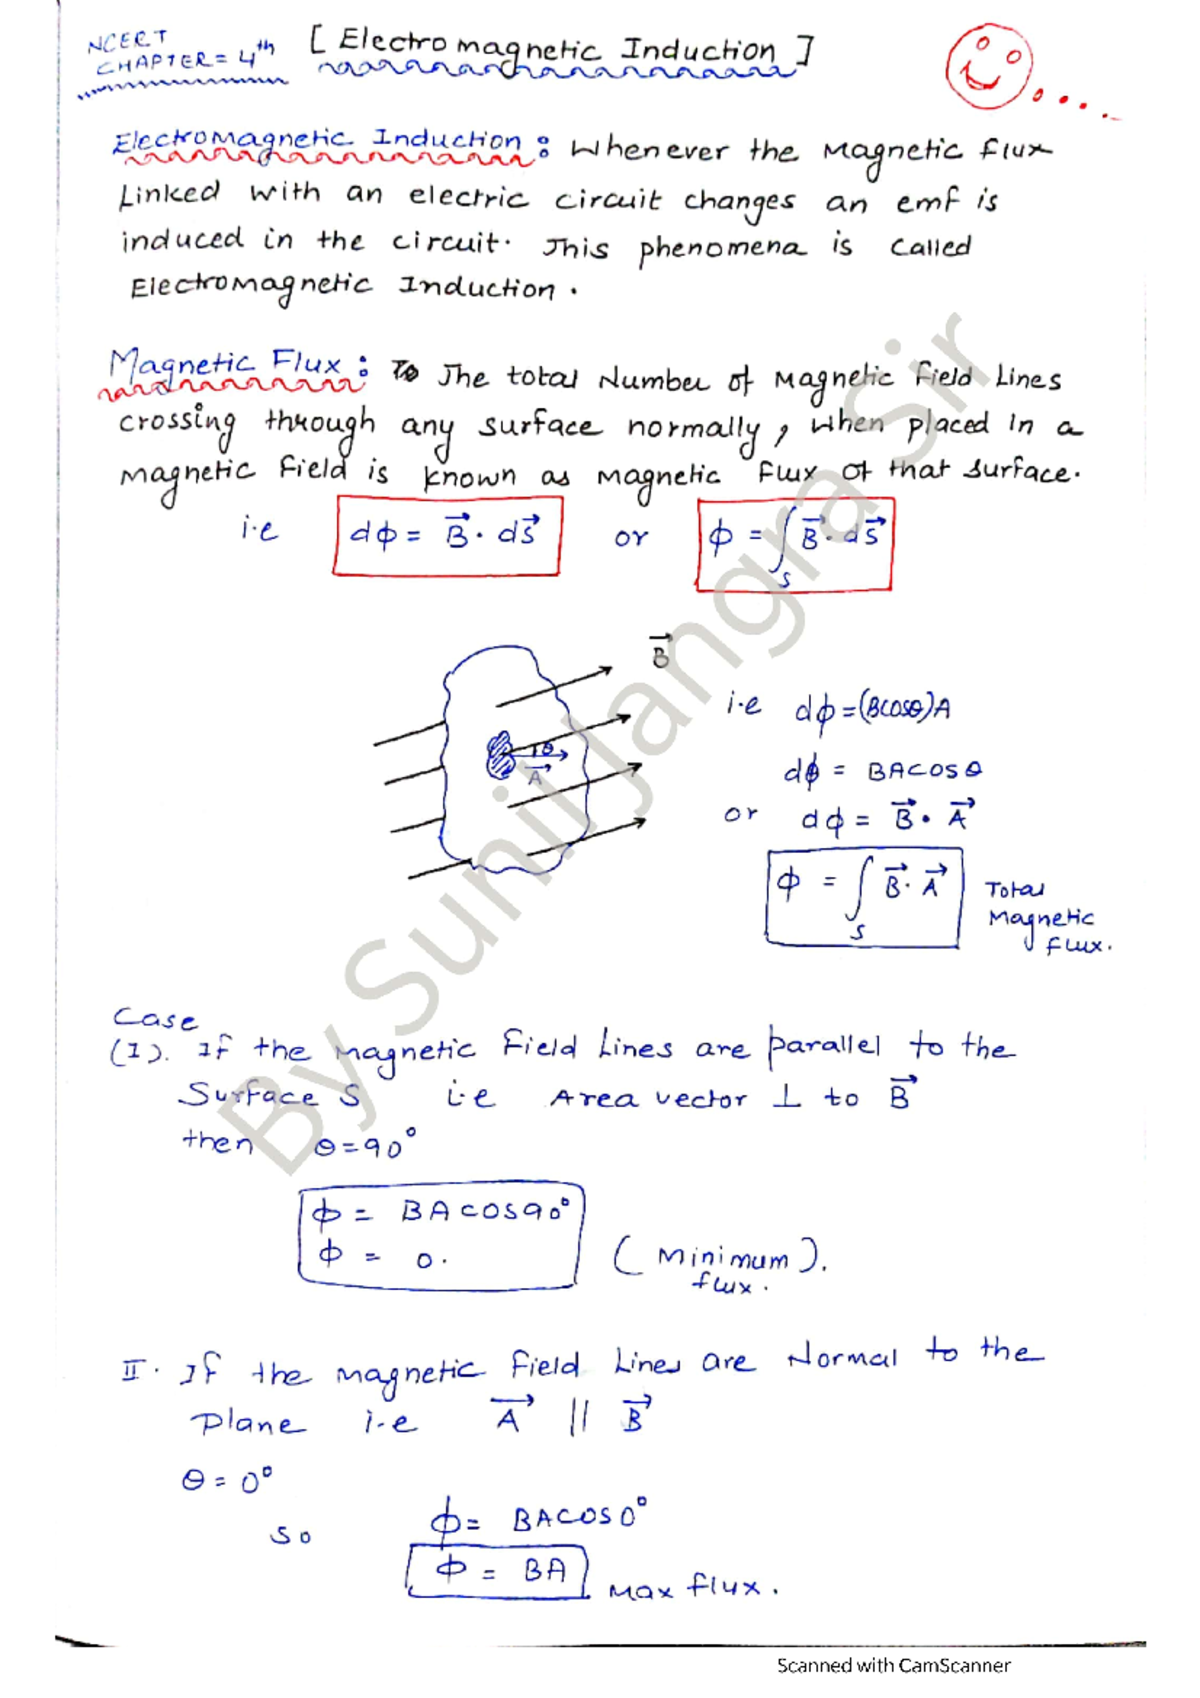 NCERT
CHAPTER = 4th
[ Electromagnetic Induction ]
Electromagnetic Induction : Whenever the Magnetic flux
Linked with an electric circuit changes an emf is
induced in the circuit. This phenomena is called
Electromagnetic Induction.
Magnetic Flux : The total Number of Magnetic field Lines
crossing through any surface normally, when placed in a
magnetic field is known as magnetic flux of that surface.
i.e dϕ = B⃗ · dS⃗ or ϕ = ∫S B⃗ · dS⃗
B⃗
θ
A⃗
i.e dϕ = (BCOSθ)A
dϕ = BACOSθ
or dϕ = B⃗ · A⃗
ϕ = ∫S B⃗ · A⃗ Total
Magnetic
flux.
Case
(I). If the magnetic field Lines are parallel to the
Surface S i.e Area vector ⊥ to B⃗
then θ = 90°
ϕ = BACOS90°
ϕ = 0. (Minimum).
flux.
II. If the magnetic field Lines are Normal to the
Plane i.e A⃗ || B⃗
θ = 0°
So ϕ = BACOS0°
ϕ = BA Max flux.
By Sunil Jangra Sir
Scanned with CamScanner